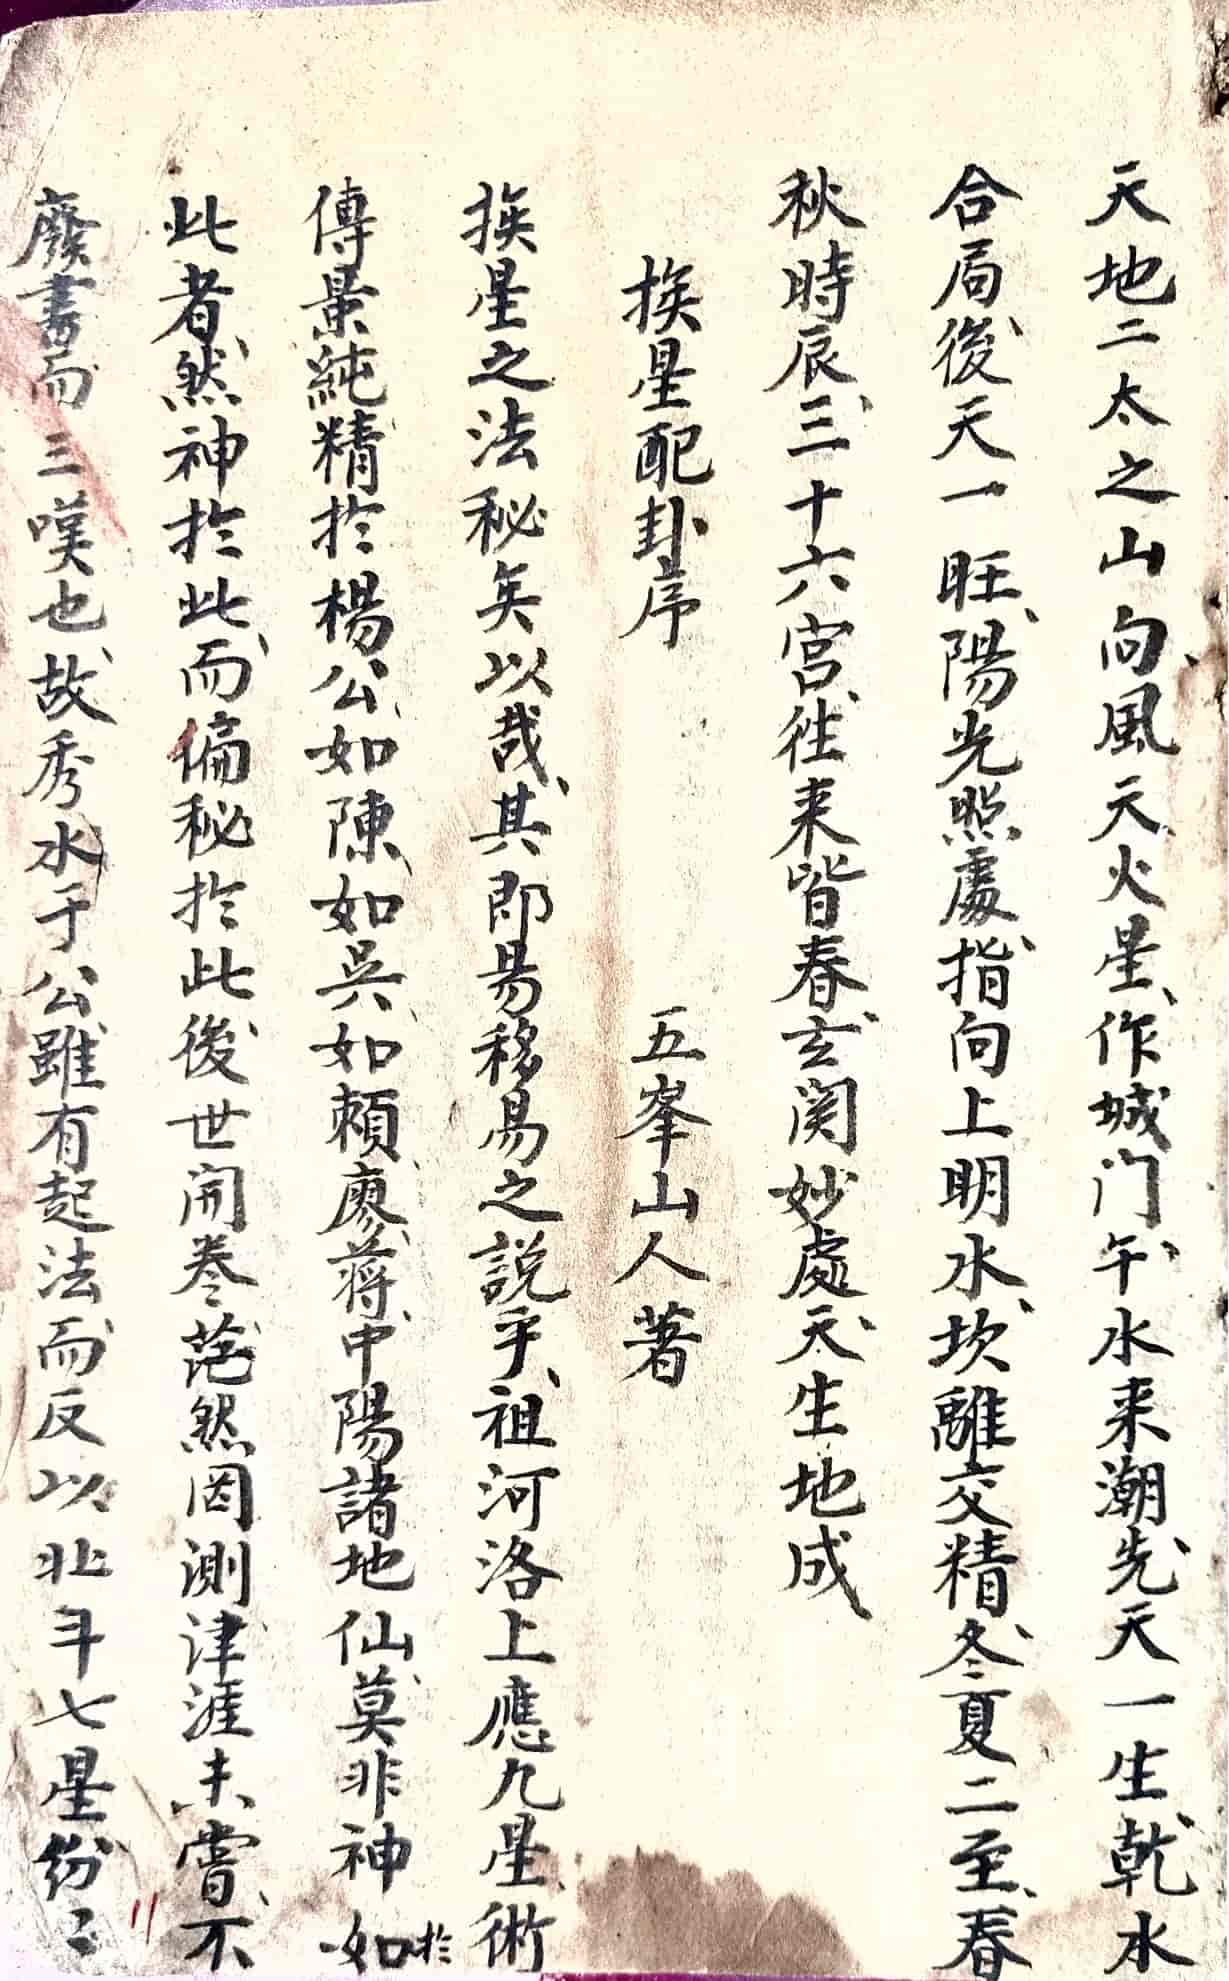 天地二太之山向風天火星作城门午水来潮先天一生乾水
合局後天一旺陽光照處指向上明水坎離交精冬夏二至春
秋時辰三十六宮往来皆春玄関妙處天生地成
挨星配卦序　五峯山人著
挨星之法秘矣以哉其即昜移昜之説乎祖河洛上應九星術
傳景純精扵楊公如陳如吳如頼廖蒋中陽諸地仙莫非神如扵
此者然神扵此而偏秘扵此後世開卷茫然因測津涯未嘗不
廢書而三嘆也故秀水于公雖有起法而反以北斗七星份〻